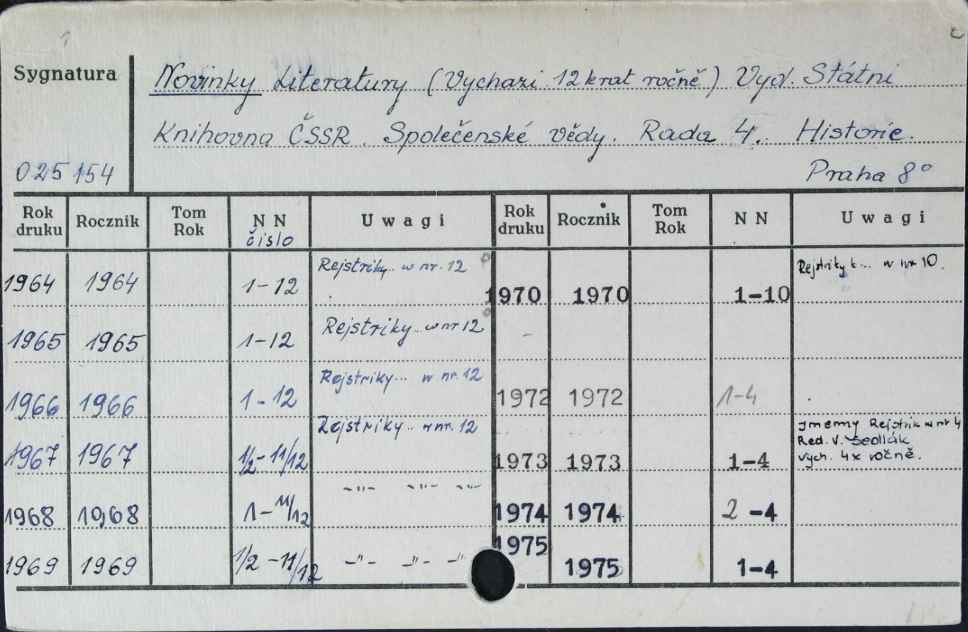 Sygnatura
Novinky Literatury (Vychazi 12 krat ročně) Vyd. Státni
Knihovna ČSSR. Společenské vědy. Rada 4. Historie.
025 154 Praha 8°
Rok druku Rocznik Tom Rok N N čislo Uwagi Rok druku Rocznik Tom Rok N N Uwagi
1964 1964 1-12 Rejstriky.. w nr. 12 1970 1970 1-10 w nr 10.
1965 1965 1-12 Rejstriky.. w nr 12 -
1966 1966 1-12 Rejstriky... w nr. 12 1972 1972 1-4
1967 1967 1/2-11/12 Rejstriky.. w nr. 12 1973 1973 1-4 Jmenny Rejstrik w nr 4
Red. V. Sedlák
vych. 4x ročně.
1968 1968 1-11/12 -"- -"- -"- 1974 1974 2-4
1969 1969 1/2-11/12 -"- -"- -"- 1975 1975 1-4